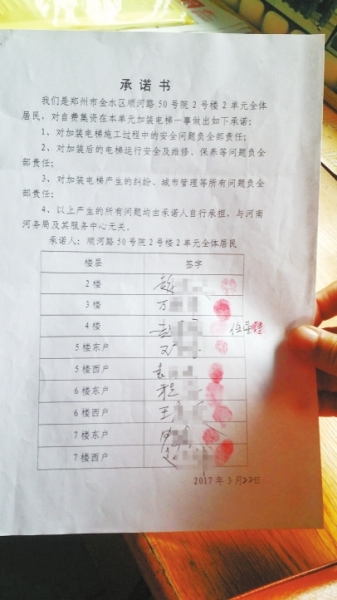 承诺书
我们是郑州市金水区顺河路50号院2号楼2单元全体
居民，对自费集资在本单元加装电梯一事做出如下承诺：
1、对加装电梯施工过程中的安全问题负全部责任；
2、对加装后的电梯运行安全及维修、保养等问题负全
部责任；
3、对加装电梯产生的纠纷、城市管理等所有问题负全
部责任；
4、以上产生的所有问题均由承诺人自行承担，与河南
河务局及其服务中心无关。
承诺人：顺河路50号院2号楼2单元全体居民
楼层 签字
2楼
3楼 万
4楼
5楼东户 邓
5楼西户 袁
6楼东户 程
6楼西户 王
7楼东户
7楼西户
2017年3月22日